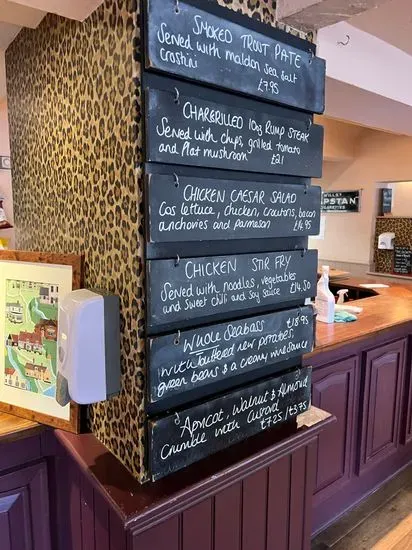 SMOKED TROUT PATE
Served with maldon sea salt
crostini
£7.95
CHARGRILLED 10oz RUMP STEAK
Served with chips, grilled tomato
and Flat mushroom £21
CHICKEN CAESAR SALAD
Cos lettuce, chicken, croutons, bacon
anchovies and parmesan £14.95
CHICKEN STIR FRY
Served with noodles, vegetables
and sweet chilli and soy sauce £14.50
WHOLE SEABASS £18.95
with buttered new potatoes,
green beans & a creamy wine sauce
APRICOT, WALNUT & ALMOND
Crumble with custard
£7.25/£3.75
WILLS'
CAPSTAN
CIGARETTES